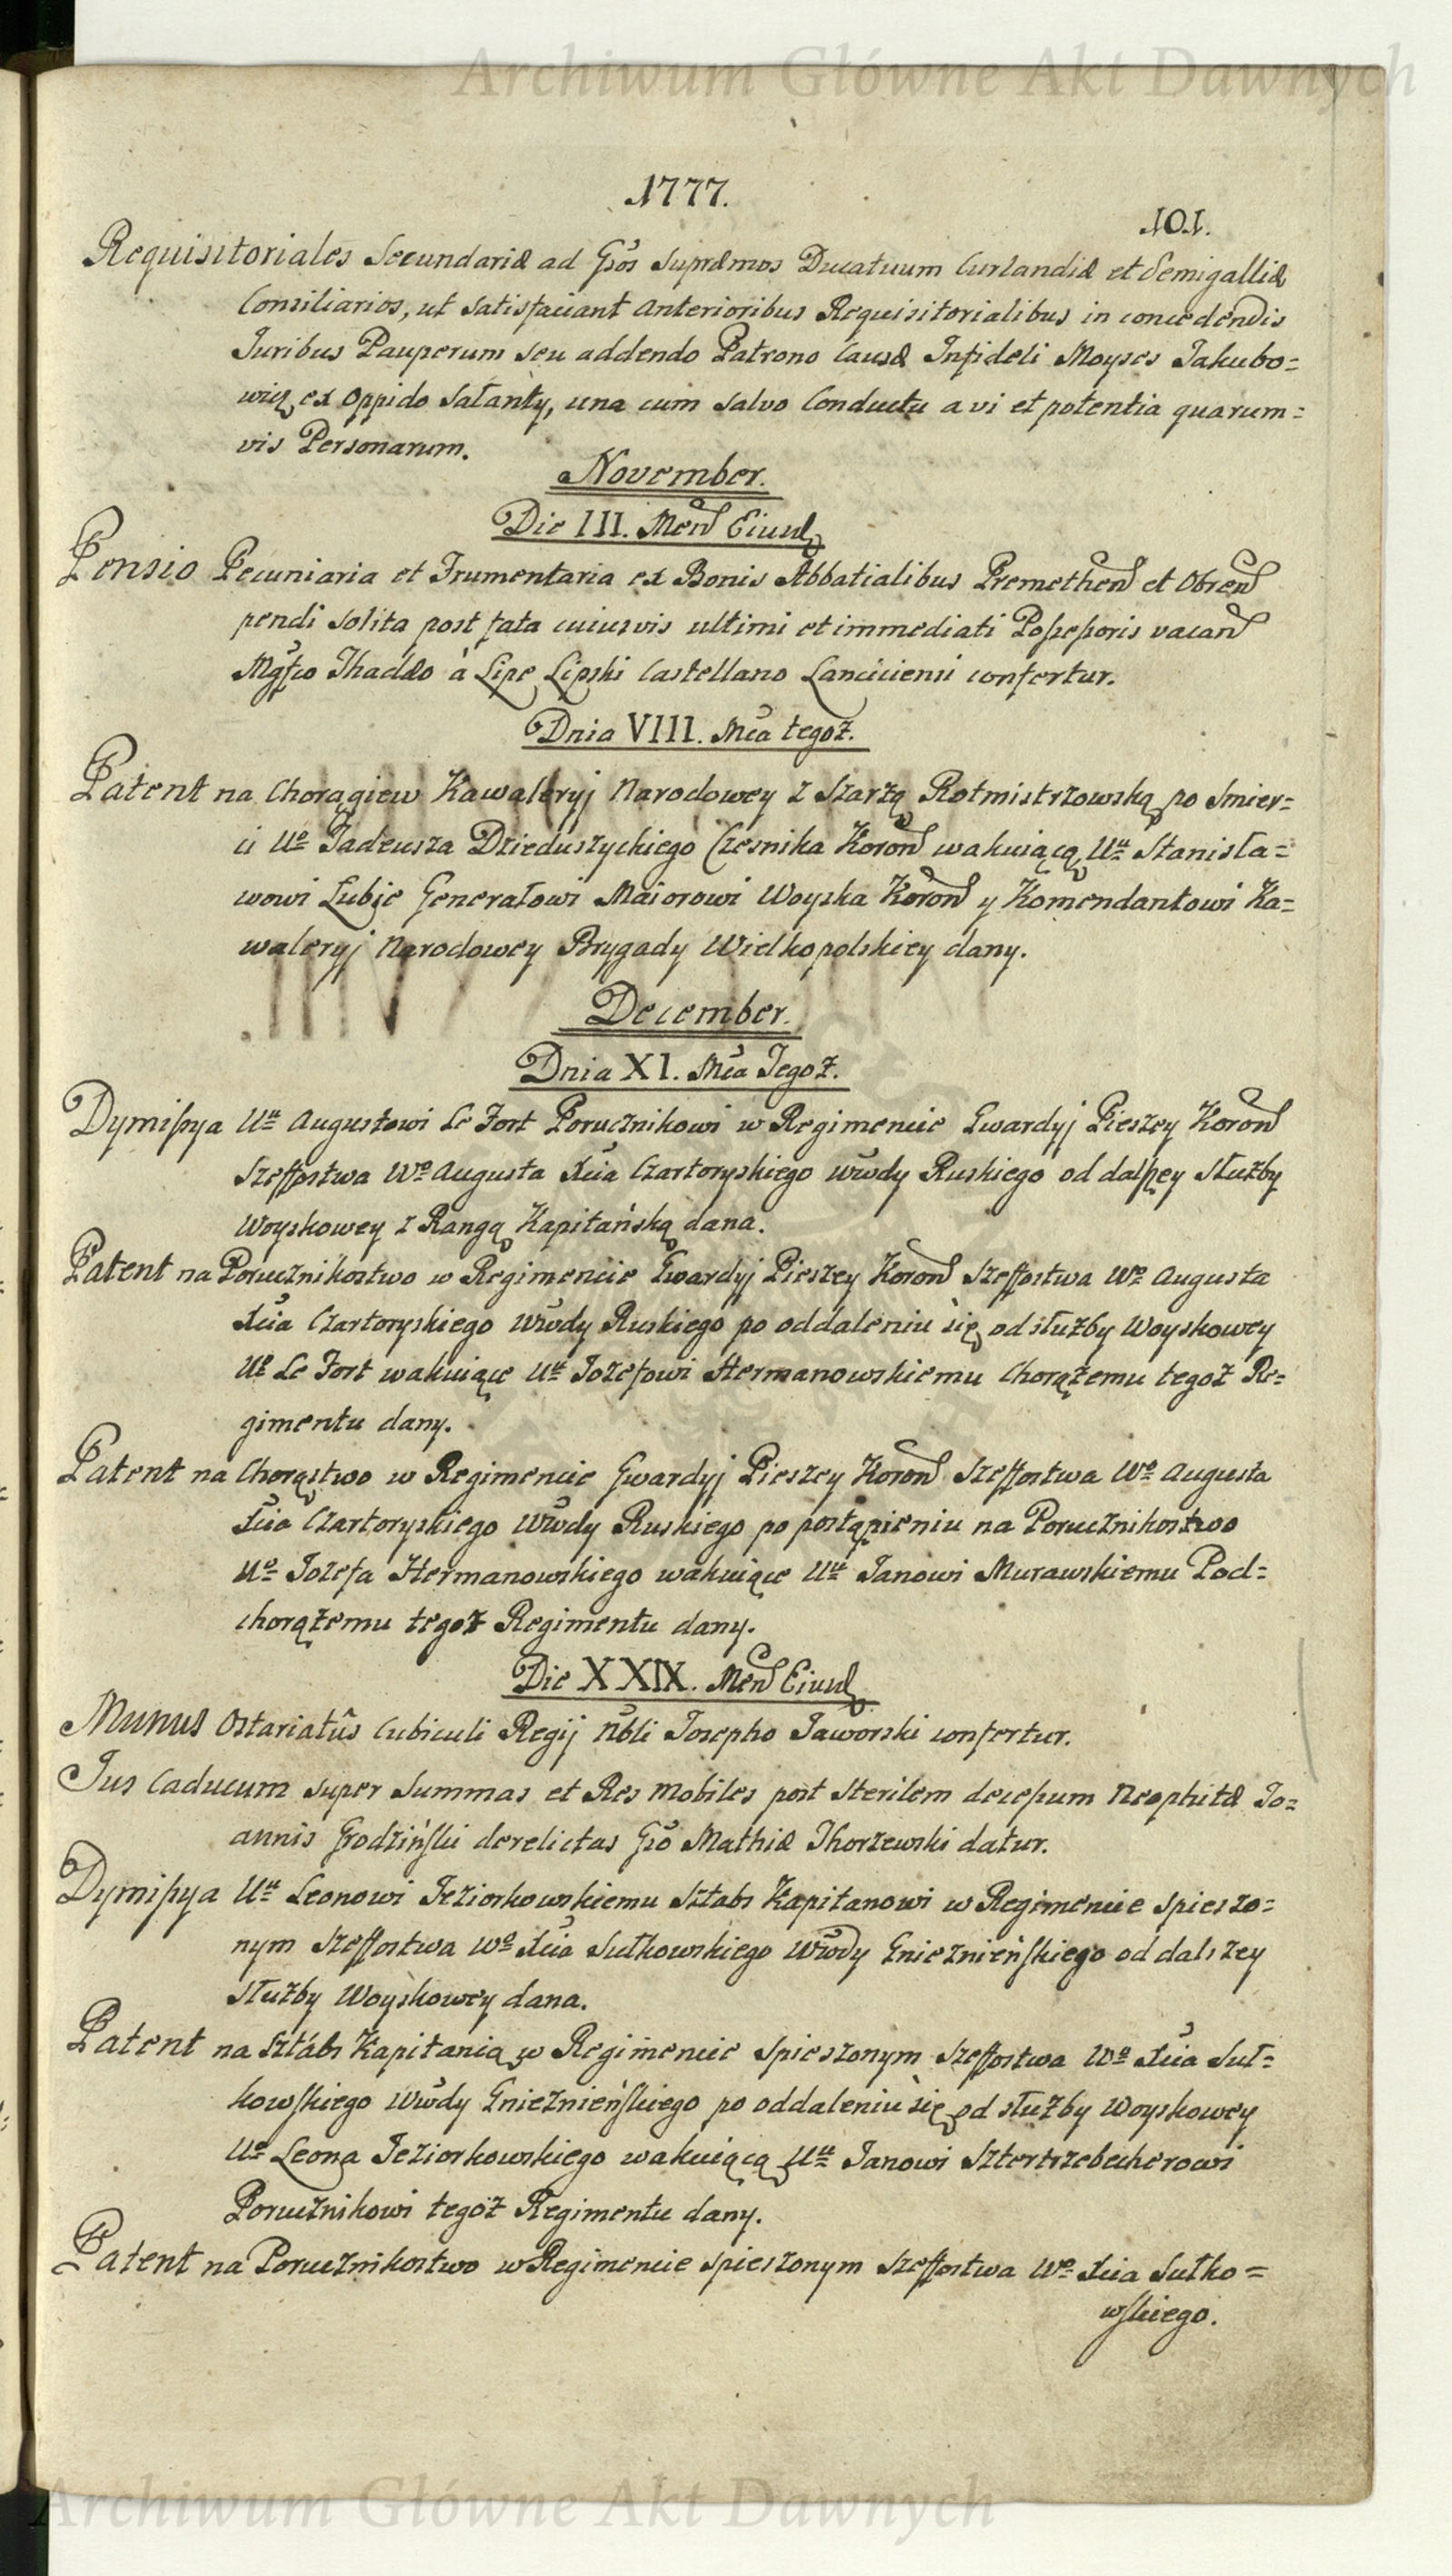 Archiwum Główne Akt Dawnych
1777.
101.
Requisitoriales Secundariæ ad Gsos Supræmos Ducatuum Curlandiæ et Semigalliæ
Consiliarios, ut satisfaciant anterioribus Requisitorialibus in concedendis
Juribus Pauperum seu addendo Patrono Causæ Infideli Moyses Jakubo=
wicz ex oppido Sałanty, una cum salvo Conductu a vi et potentia quarum=
vis Personarum.
November.
Die III. Men Eiusd
Pensio Pecuniaria et Frumentaria ex Bonis Abbatialibus Premethen et Obren
pendi solita post fata cuiusvis ultimi et immediati Possessoris vacan
Mgfco Thadæo à Lipe Lipski Castellano Lanciciensi confertur.
Dnia VIII. Mca tegoż.
Patent na Chorągiew Kawaleryj Narodowey z Szarżą Rotmistrzowską po Smier=
ci Uo Tadeusza Dzieduszyckiego Czesnika Koron wakuiącą Uu Stanisła=
wowi Lubje Generałowi Maiorowi Woyska Koron y Komendantowi Ka=
waleryj Narodowey Brygady Wielkopolskiey dany.
December.
Dnia XI. Mca Tegoż.
Dymissya Uu Augustowi Le Fort Porucznikowi w Regimencie Gwardyj Pieszey Koron
Szeffostwa Wo Augusta Xcia Czartoryskiego Wwdy Ruskiego od dalszey Służby
Woyskowey z Rangą Kapitańską dana.
Patent na Porucznikostwo w Regimencie Gwardyj Pieszey Koron Szeffostwa Wo Augusta
Xcia Czartoryskiego Wwdy Ruskiego po oddaleniu się od służby Woyskowey
Uo Le Fort wakuiące Uu Jozefowi Hermanowskiemu Chorążemu tegoż Re=
gimentu dany.
Patent na Chorąstwo w Regimencie Gwardyj Pieszey Koron Szeffostwa Wo Augusta
Xcia Czartoryskiego Wwdy Ruskiego po postąpieniu na Porucznikostwo
Uo Jozefa Hermanowskiego wakuiące Uu Janowi Murawskiemu Pod=
chorążemu tegoż Regimentu dany.
Die XXIX. Men Eiusd
Munus Ostariatûs Cubiculi Regij Nbli Josepho Jaworski confertur.
Jus Caducum super Summas et Res mobiles post sterilem decessum Neophitæ Jo=
annis Grodziński derelictas Gso Mathiæ Thorzewski datur.
Dymissya Uu Leonowi Jeziorkowskiemu Sztabs Kapitanowi w Regimencie spieszo=
nym Szeffostwa Wo Xcia Sułkowskiego Wwdy Gnieźnieńskiego od dalszey
służby Woyskowey dana.
Patent na Sztabs Kapitanią w Regimencie spieszonym Szeffostwa Wo Xcia Suł=
kowskiego Wwdy Gnieźnieńskiego po oddaleniu się od służby Woyskowey
Uo Leona Jeziorkowskiego wakuiącą Uu Janowi Szterrzebecherowi
Porucznikowi tegoż Regimentu dany.
Patent na Porucznikostwo w Regimencie spieszonym Szeffostwa Wo Xcia Sułko=
wskiego.
Archiwum Główne Akt Dawnych